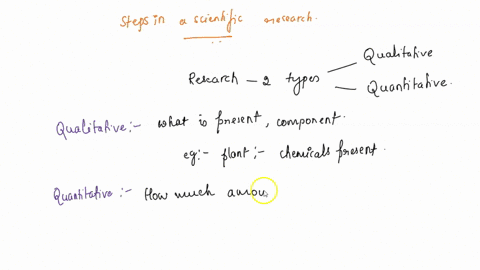 Steps in a scientific research.
Research - 2 types
Qualitative
Quantitative.
Qualitative :- what is present, component.
eg:- plant :- chemicals present.
Quantitative :- How much amou